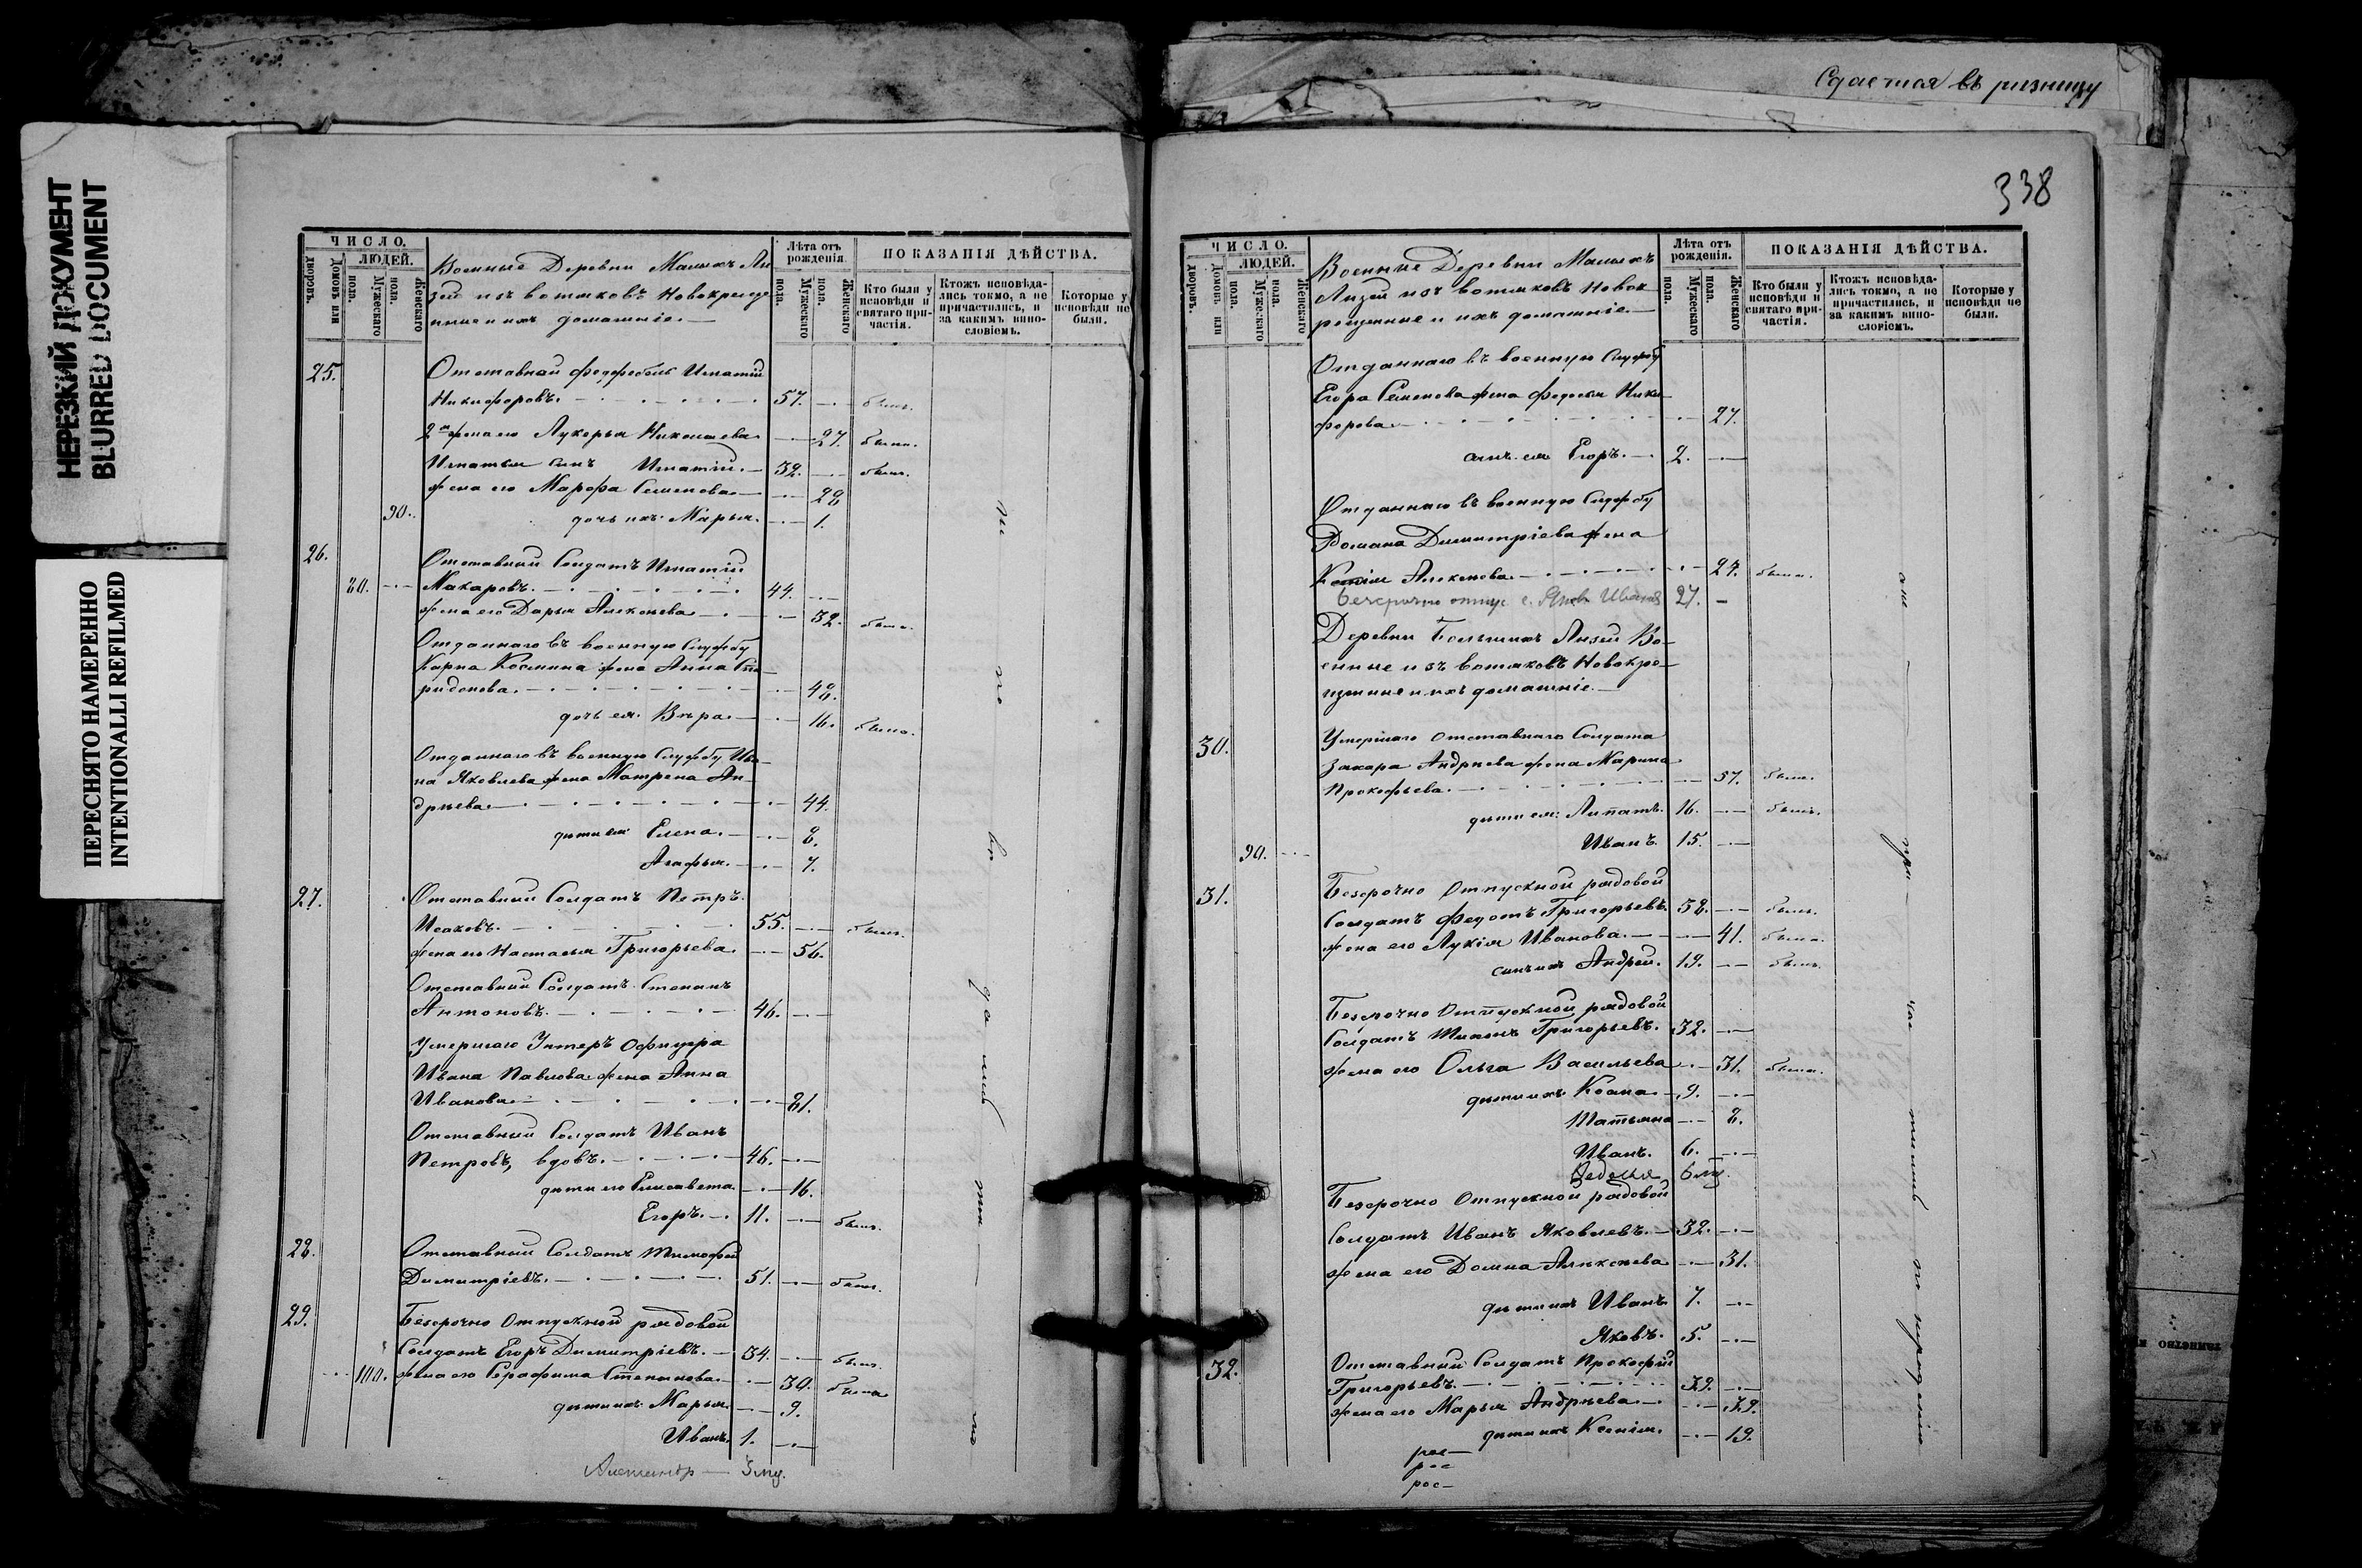 Сдается въ ризницу
338
НЕРЕЗКИЙ ДОКУМЕНТ
BLURRED DOCUMENT
ПЕРЕСНЯТО НАМЕРЕННО
INTENTIONALLI REFILMED
ЧИСЛО.
дворовъ.
Домовъ или
ЛЮДЕЙ.
Мужескаго пола.
Женскаго пола.
Военные Деревни Малыхъ Ли
зей изъ вотяковъ Новокреще
нные и ихъ домашніе.
Лѣта отъ рожденія.
Мужескаго пола.
Женскаго пола.
ПОКАЗАНІЯ ДѢЙСТВА.
Кто были у исповѣди и святаго причастія.
Ктожъ исповѣдались токмо, а не причастились, и за какимъ винословіемъ.
Которые у исповѣди не были.
25. Отставной фелдфебель Игнатій
Никифоровъ. 57. былъ.
2я жена его Лукерья Николаева 27. была.
Игнатья сынъ Игнатій. 32. былъ.
жена его Марфа Семенова 28
90. дочь ихъ Марья. 1.
26. Отставный Солдатъ Игнатій
80. Макаровъ. 44.
жена его Дарья Алексѣева 32. была.
Отданнаго въ военную Службу
Карпа Космина жена Анна Спи
ридонова. 48.
дочь ея Вѣра. 16. была.
Отданнаго въ военную Службу Ива
на Яковлева жена Матрена Ан
дрѣева 44.
дѣти ея Елена. 8.
Агафья. 7.
27. Отставный Солдатъ Петръ
Исаковъ. 55. былъ.
жена его Настасья Григорьева 56.
Отставный Солдатъ Степанъ
Антоновъ. 46.
Умершаго Унтеръ Офицера
Ивана Павлова жена Анна
Иванова 81.
Отставный Солдатъ Иванъ
Петровъ, вдовъ. 46.
дѣти его Елисавета 16.
Егоръ. 11. былъ.
28. Отставный Солдатъ Тимофей
Димитріевъ. 51. былъ.
29. Безсрочно Отпускной рядовой
Солдатъ Егоръ Димитріевъ. 34. былъ.
100. жена его Серафима Степанова 30. была
дѣти ихъ Марья. 9.
Иванъ. 1.
3 мц.
ЧИСЛО.
дворовъ.
Домов. или
ЛЮДЕЙ.
Мужескаго пола.
Женскаго
Военные Деревни Малыхъ
Лизей изъ вотяковъ Новок
рещенные и ихъ домашніе.
Лѣта отъ рожденія.
Мужескаго пола.
Женскаго пола.
ПОКАЗАНІЯ ДѢЙСТВА.
Кто были у исповѣди и святаго причастія.
Ктожъ исповѣдались токмо, а не причастились, и за какимъ винословіемъ.
Которые у исповѣди не были.
Отданнаго въ военную Службу
Егора Семенова жена Федосья Ники
форова 27.
сынъ ея Егоръ. 2.
Отданнаго въ военную Службу
Романа Димитріева жена
Ксенія Алексѣева 24. была.
безсрочно отпус. с. Яковъ Ивановъ 27.
Деревни Большихъ Лизей Во
енные изъ вотяковъ Новокре
щенные и ихъ домашніе.
30. Умершаго отставнаго Солдата
Захара Андрѣева жена Марина
Прокофьева. 57. была.
дѣти ея: Липатъ. 16. былъ.
90. Иванъ. 15.
31. Безсрочно Отпускной рядовой
Солдатъ Федотъ Григорьевъ. 38. былъ.
жена его Лукія Иванова. 41. была.
сынъ ихъ Андрей. 19. былъ.
Безсрочно Отпускной рядовой
Солдатъ Григорьевъ. 32.
жена его Ольга Васильева 31. была.
дѣти ихъ Косма 9.
Татьяна 8.
Иванъ. 6.
6 мц.
Безсрочно Отпускной рядовой
Солдатъ Иванъ Яковлевъ. 32.
жена его Домна Алексѣева 31.
дѣти ихъ Иванъ 7.
Яковъ. 5.
32. Отставный Солдатъ Прокофій
Григорьевъ. 39.
жена его Марья Андрѣева. 39.
дѣти ихъ Ксенія. 19.
рос
рос
рос
по нерадѣнію